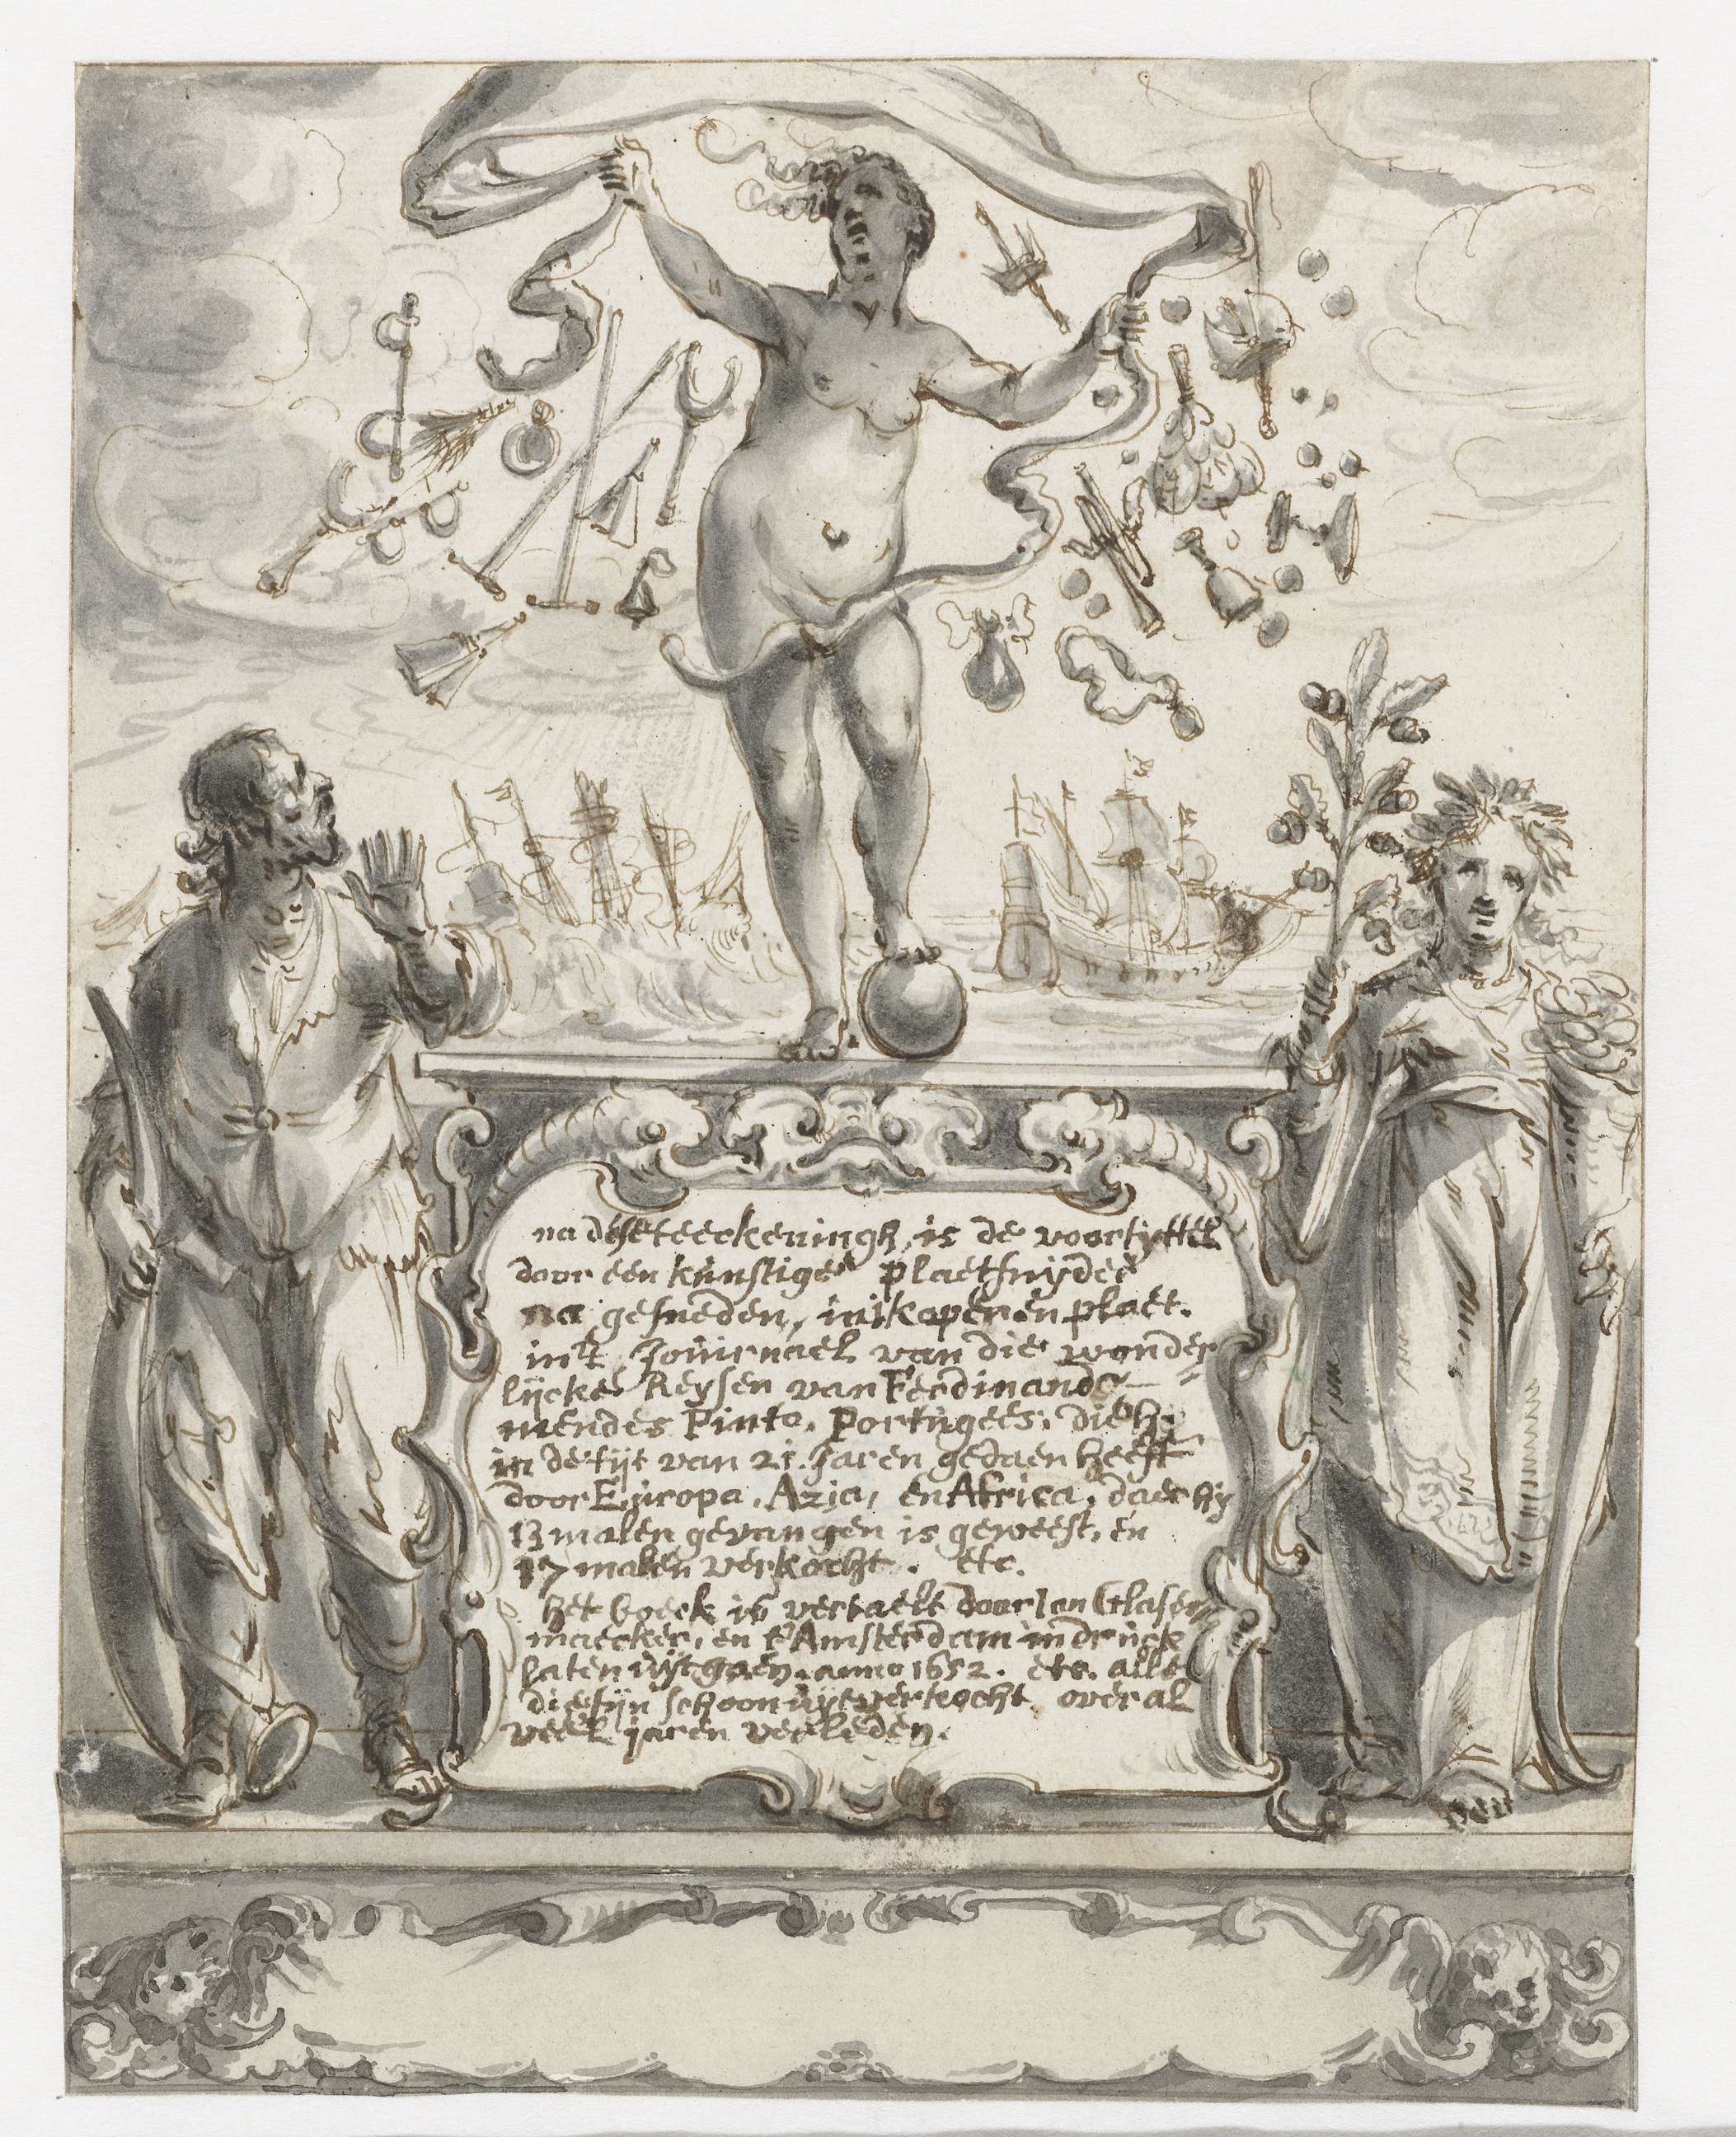 na dese teeckeningh, is de voortyttel
door een kunstige plaetsnyder
na gesneden, in kopéren plaet.
in't Journael van die wonder
lijcke Reysen van Ferdinando
mendes Pinto, Portugees, die hy
in de tijt van 21. Jaren gedaen heeft
door Europa, Azia, en Africa, daer hy
13 malen gevangen is geweest, en
17 malen verkocht. etc.
het boeck is vertaelt door Ian Glasen
maecker, en t'Amsterdam in druck
laten uytgaen. anno 1652. etc. alle
die sijn schoon uytverkocht over al
veel jaren verleden.